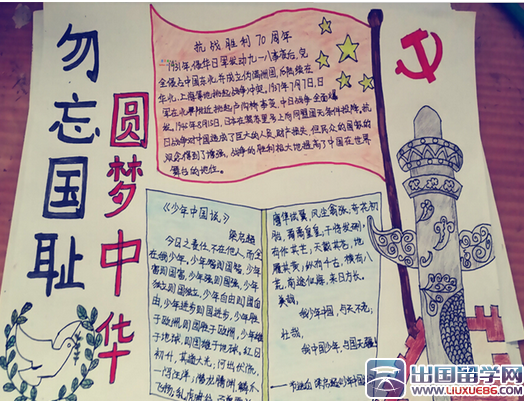 勿忘国耻
圆梦中华
抗战胜利70周年
1931年,侵华日军发动九一八事变后,完
全侵占中国东北,并成立伪满洲国,后陆续在
华北、上海等地挑起战争冲突,1937年7月7日,日
军在北平附近挑起卢沟桥事变,中日战争全面爆
发。1945年8月15日,日本在莫
日战争对中国造成了巨大的人员、财产损失,但民众的国家的
观念得到了增强,战争的胜利极大地提高了中国在世界
舞台的地位。
《少年中国说》
梁启超
今日之责任,不在他人,而全
在我少年,少年智则国智,少年
富则国富,少年强则国强,少年
独立则国独立,少年自由则国自
由,少年进步则国进步,少年胜
于欧洲,则国胜于欧洲,少年雄
于地球,则国雄于地球。红日
初升,其道大光;河出伏流,
一泻汪洋;潜龙腾渊,鳞爪
飞扬;乳虎啸谷,
鹰隼试翼,风尘翕张。奇花初
胎,矞矞皇皇;干将发硎,
有作其芒;天戴其苍,地
履其黄;纵有千古,横有八
荒;前途似海,来日方长。
美哉,
我少年中国,与天不老;
壮哉,
我中国少年,与国无疆!
出国留学网
WWW.LIUXUE86.COM